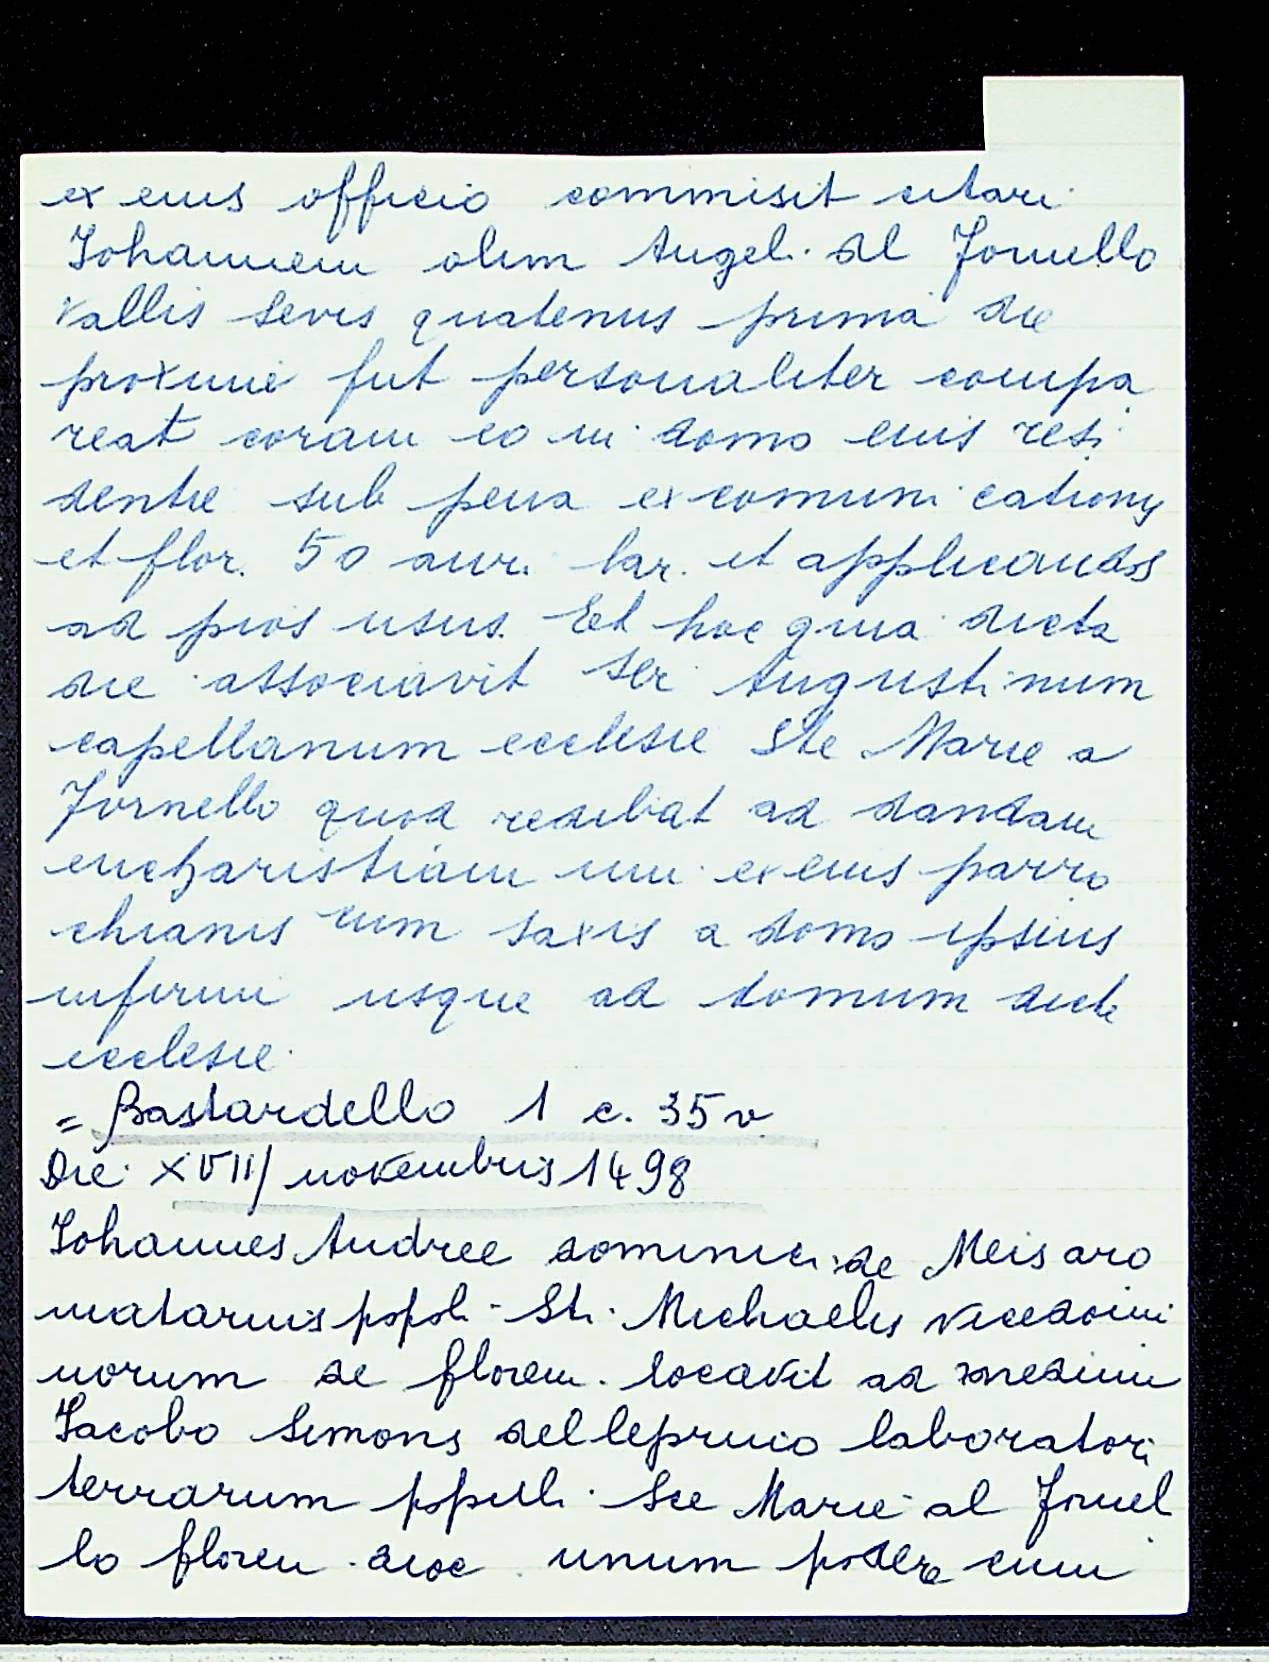 ex eius officio commisit citari
Johannem olim Angeli al Fornello
vallis Sevis quatenus prima die
proxime fut personaliter compa
reat coram eo in domo eius resi
dentie sub pena excomunicationis
et flor. 50 aur. lar. et applicandos
ad pios usus. Et hoc quia dicta
die associavit Ser Augustinum
capellanum ecclesie Ste Marie a
Fornello quod redibat ad dandam
eucharistiam uni ex eius parro
chianis cum saxis a domo ipsius
infirmi usque ad domum dicte
ecclesie
= Bastardello 1 c. 35 v
Die XVII/ novembris 1498
Johannes Andree dominici de Meisaro
matarius popoli Sti Michaelis vicedomi
norum de floren. locavit ad medium
Jacobo Simonis del lepruio laboratori
terrarum popul. Sce Marie al Fornel
lo floren dioc. unum podere cum